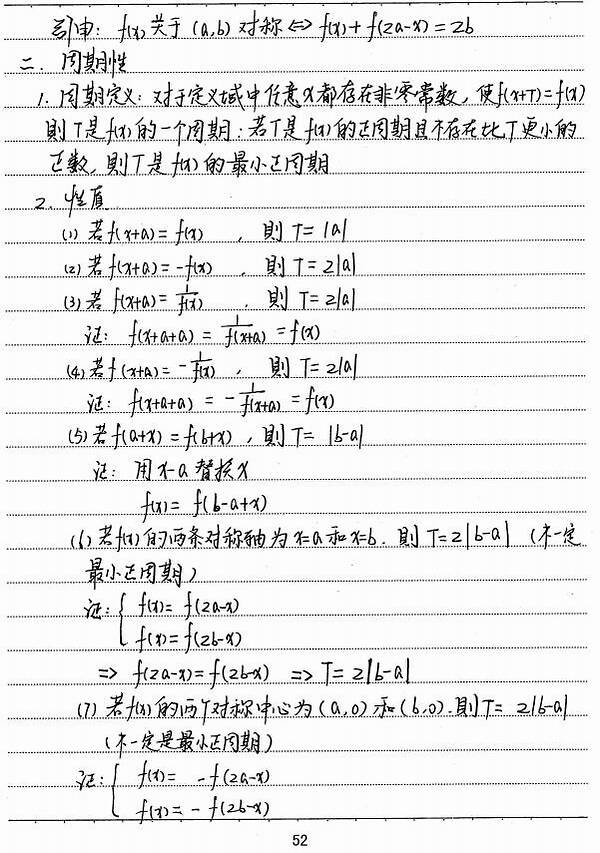 引申: f(x)关于(a,b)对称⇔f(x)+f(2a-x)=2b
二. 周期性
1. 周期定义: 对于定义域中任意x都存在非零常数, 使f(x+T)=f(x)
則T是f(x)的一个周期; 若T是f(x)的正周期且不存在比T更小的
正数, 則T是f(x)的最小正周期
2. 性质
(1) 若f(x+a)=f(x) , 則T=|a|
(2) 若f(x+a)=-f(x) , 則T=2|a|
(3) 若f(x+a)=1/f(x) , 則T=2|a|
证: f(x+a+a)=1/f(x+a)=f(x)
(4) 若f(x+a)=-1/f(x) , 則T=2|a|
证: f(x+a+a)=-1/f(x+a)=f(x)
(5) 若f(a+x)=f(b+x), 則T=|b-a|
证: 用x-a替换x
f(x)=f(b-a+x)
(6) 若f(x)的两条对称轴为x=a和x=b. 則T=2|b-a| (不一定
最小正周期)
证: { f(x)=f(2a-x)
f(x)=f(2b-x)
=> f(2a-x)=f(2b-x) => T=2|b-a|
(7) 若f(x)的两个对称中心为(a,0)和(b,0).則T=2|b-a|
(不一定是最小正周期)
证: { f(x)=-f(2a-x)
f(x)=-f(2b-x)
52